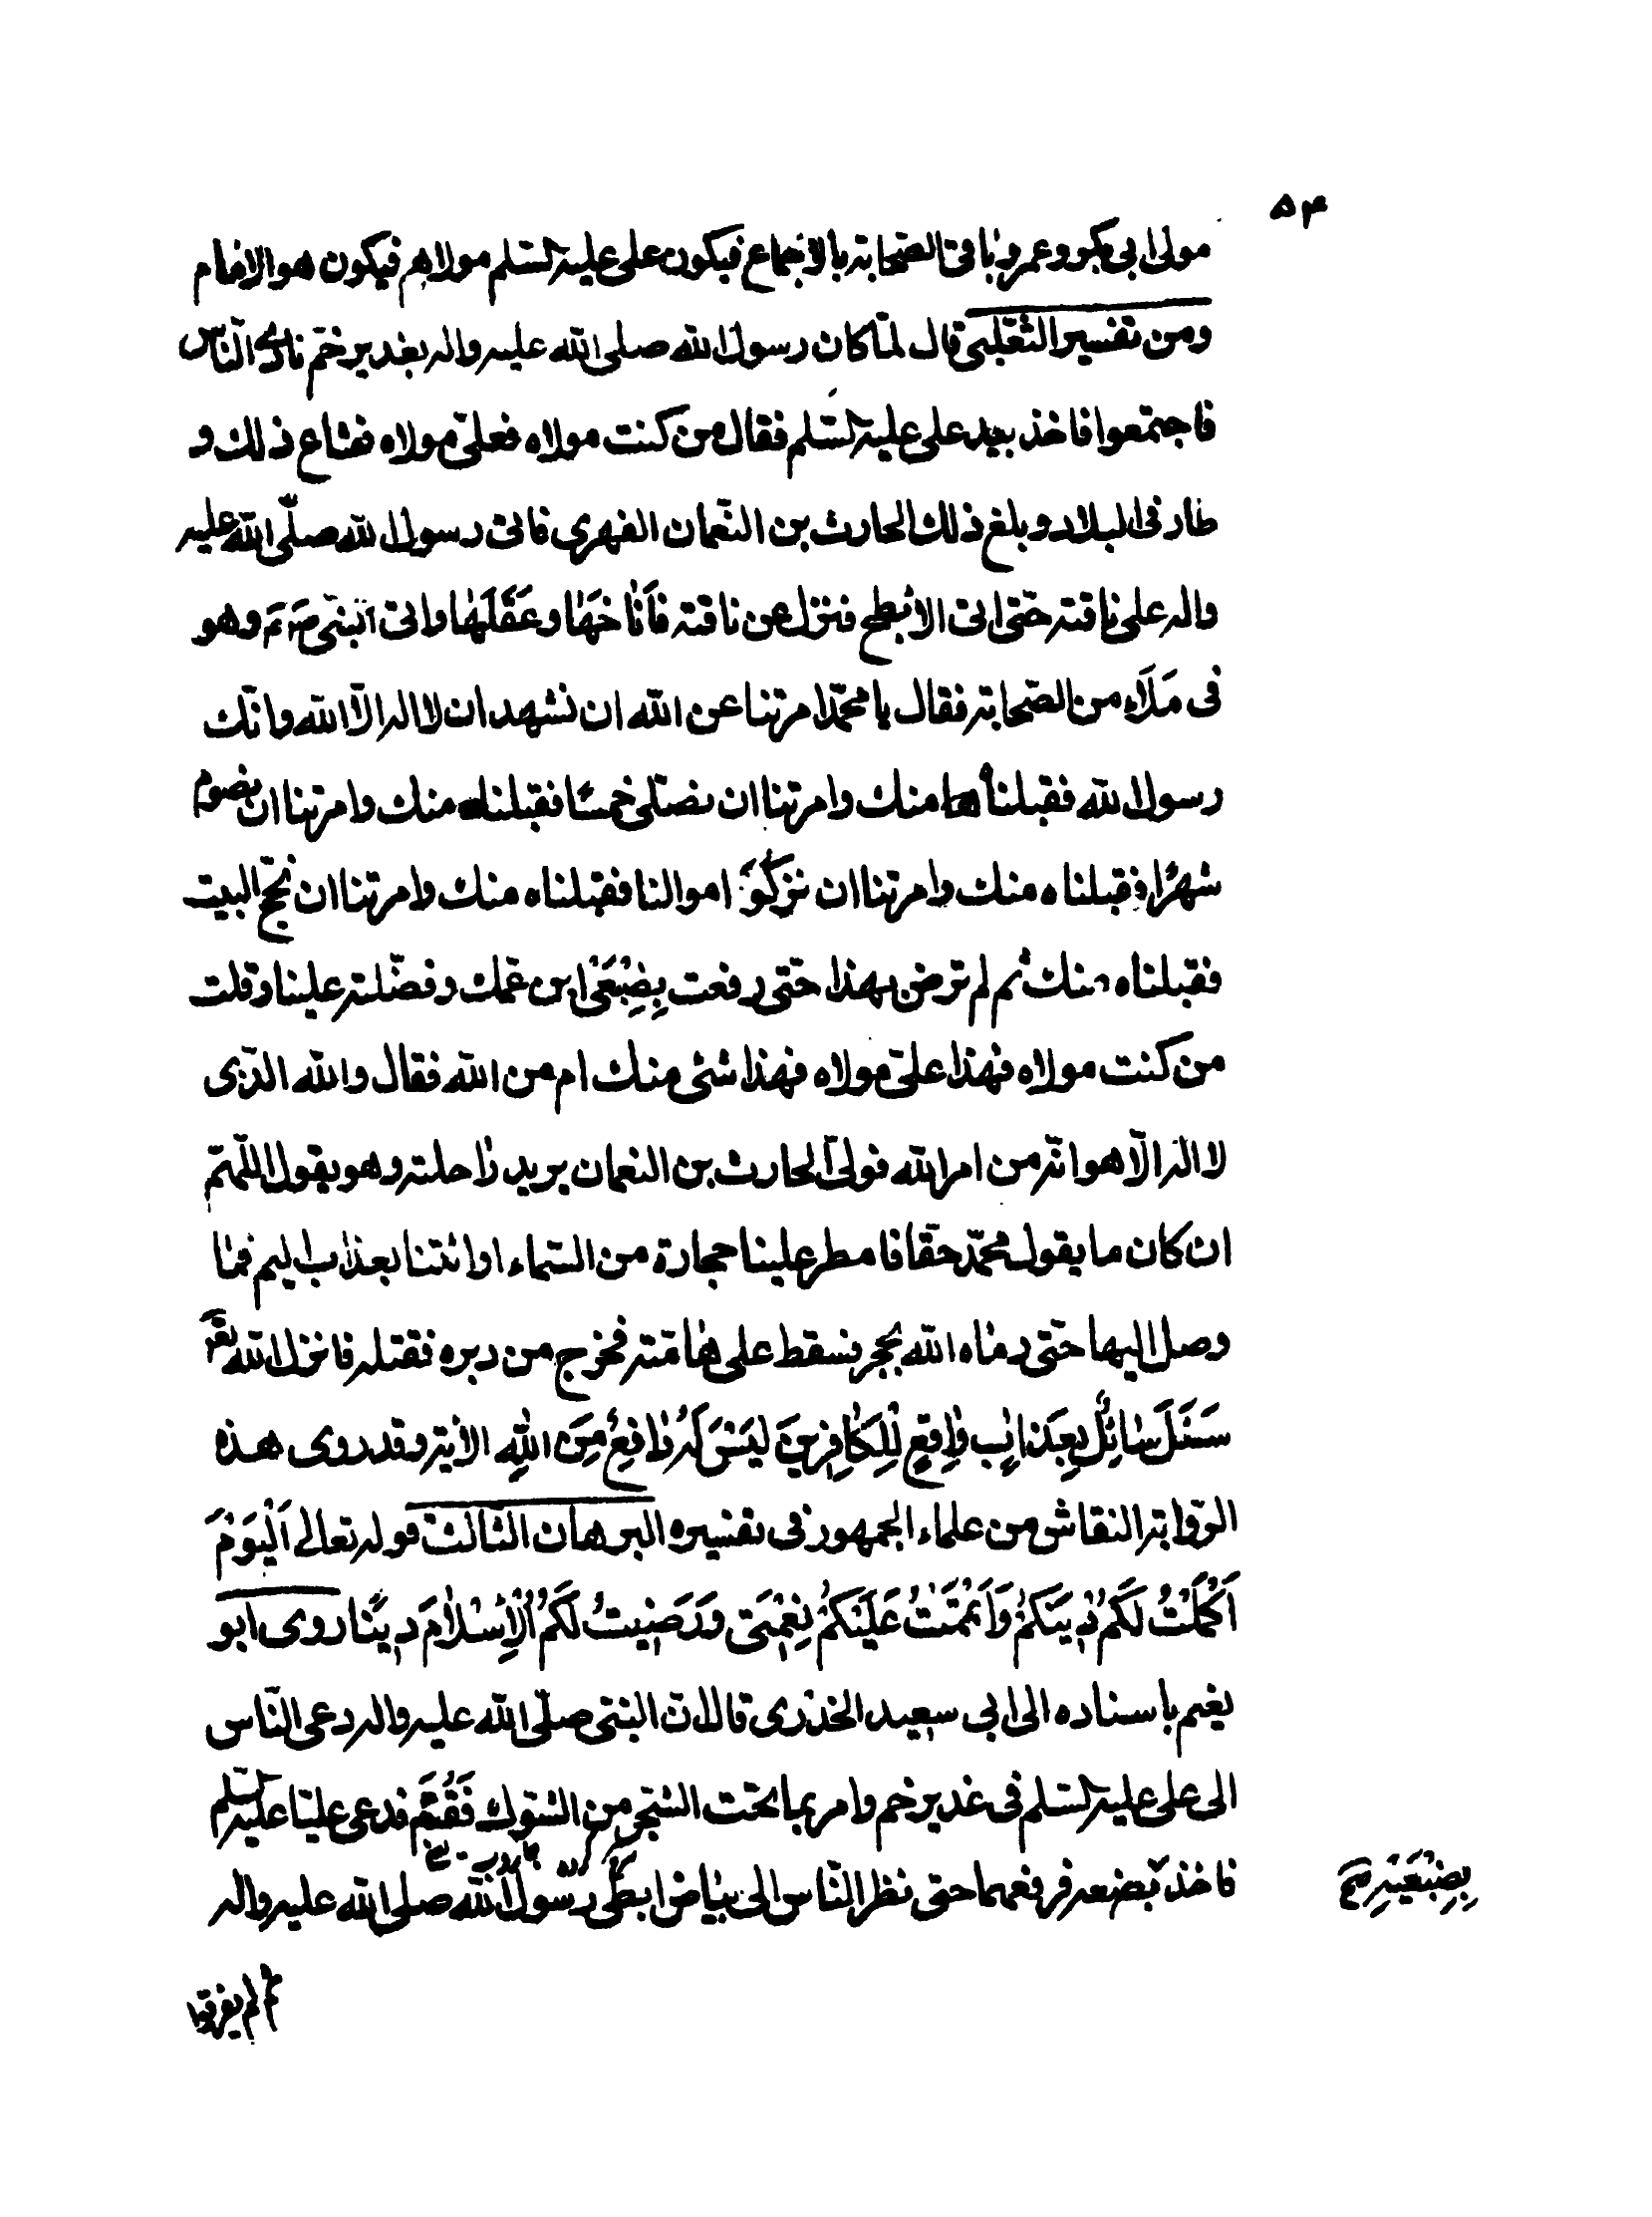 ۵۴
مولى ابى بكر و عمر و باقى الصّحابة بالاجماع فيكون على عليه السّلم مولاهم فيكون هو الامام
ومن تفسير الثّعلبى قال لمّا كان رسول الله صلى الله عليه واله بغدير خمّ نادى النّاس
فاجتمعوا فاخذ بيد على عليه السّلم فقال من كنت مولاه فعلىّ مولاه فشاع ذلك و
طار فى البلاد و بلغ ذلك الحارث بن النّعمان الفهرى فاتى رسول الله صلّى الله عليه
واله على ناقته حتّى اتى الابطح فنزل عن ناقته فَاَناخَهَا و عَقَلَهٰا واتى النبىّ وهو
فى مَلَاءٍ من الصّحابة فقال يا محمّد امرتنا عن الله ان نشهد ان لا اله الّا الله وانّك
رسول الله فقبلنا منك وامرتنا ان نصلّى خمسًا فقبلناه منك وامرتنا ان نصوم
شهرًا فقبلناه منك وامرتنا ان نزكو اموالنا فقبلناه منك وامرتنا ان نحجّ البيت
فقبلناه منك ثم لم ترض بهذا حتّى رفعت بِضِبْعَىْ ابن عمّك وفضّلته علينا وقلت
من كنت مولاه فهذا علىّ مولاه فهذا شئ منك ام من الله فقال والله الّذى
لا اله الّا هو انّه من امر الله فولّى الحارث بن النعمان يريد راحلته وهو يقول اللّهمّ
ان كان ما يقول محمّد حقّا فامطر علينا حجارة من السّماء او ائتنا بعذاب اليم فما
وصل اليها حتّى رماه الله بحجر فسقط على هامته فخرج من دبره فقتله فانزل الله تعٰ
سَئَلَ سٰائِلٌ بِعَذابٍ وٰاقِعٍ لِلْكٰافِرينَ لَيْسَ لَهُ دٰافِعٌ مِنَ اللهِ الاية وقد روى هذه
الرّواية النقاش من علماء الجمهور فى تفسيره البرهان الثالث قوله تعالى اَلْيَوْمَ
اَكْمَلْتُ لَكُمْ دٖينَكُمْ وَاَتْمَمْتُ عَلَيْكُمْ نِعْمَتى وَرَضيتُ لَكُمُ الْاِسْلٰامَ دٖينًا روى ابو
نعيم باسناده الى ابى سعيد الخدرى قال ان النبّى صلّى الله عليه واله دعى النّاس
الى على عليه السّلم فى غدير خم وامر بما تحت الشّجر من الشّوك فَقُمَّ فدعى عليّا عليه السّلم
فاخذ بضبعه فرفعهما حتى نظر النّاس الى بياض ابطى رسول الله صلى الله عليه واله
بِضِبْعَيْهِ
ثم لم يفرقوا